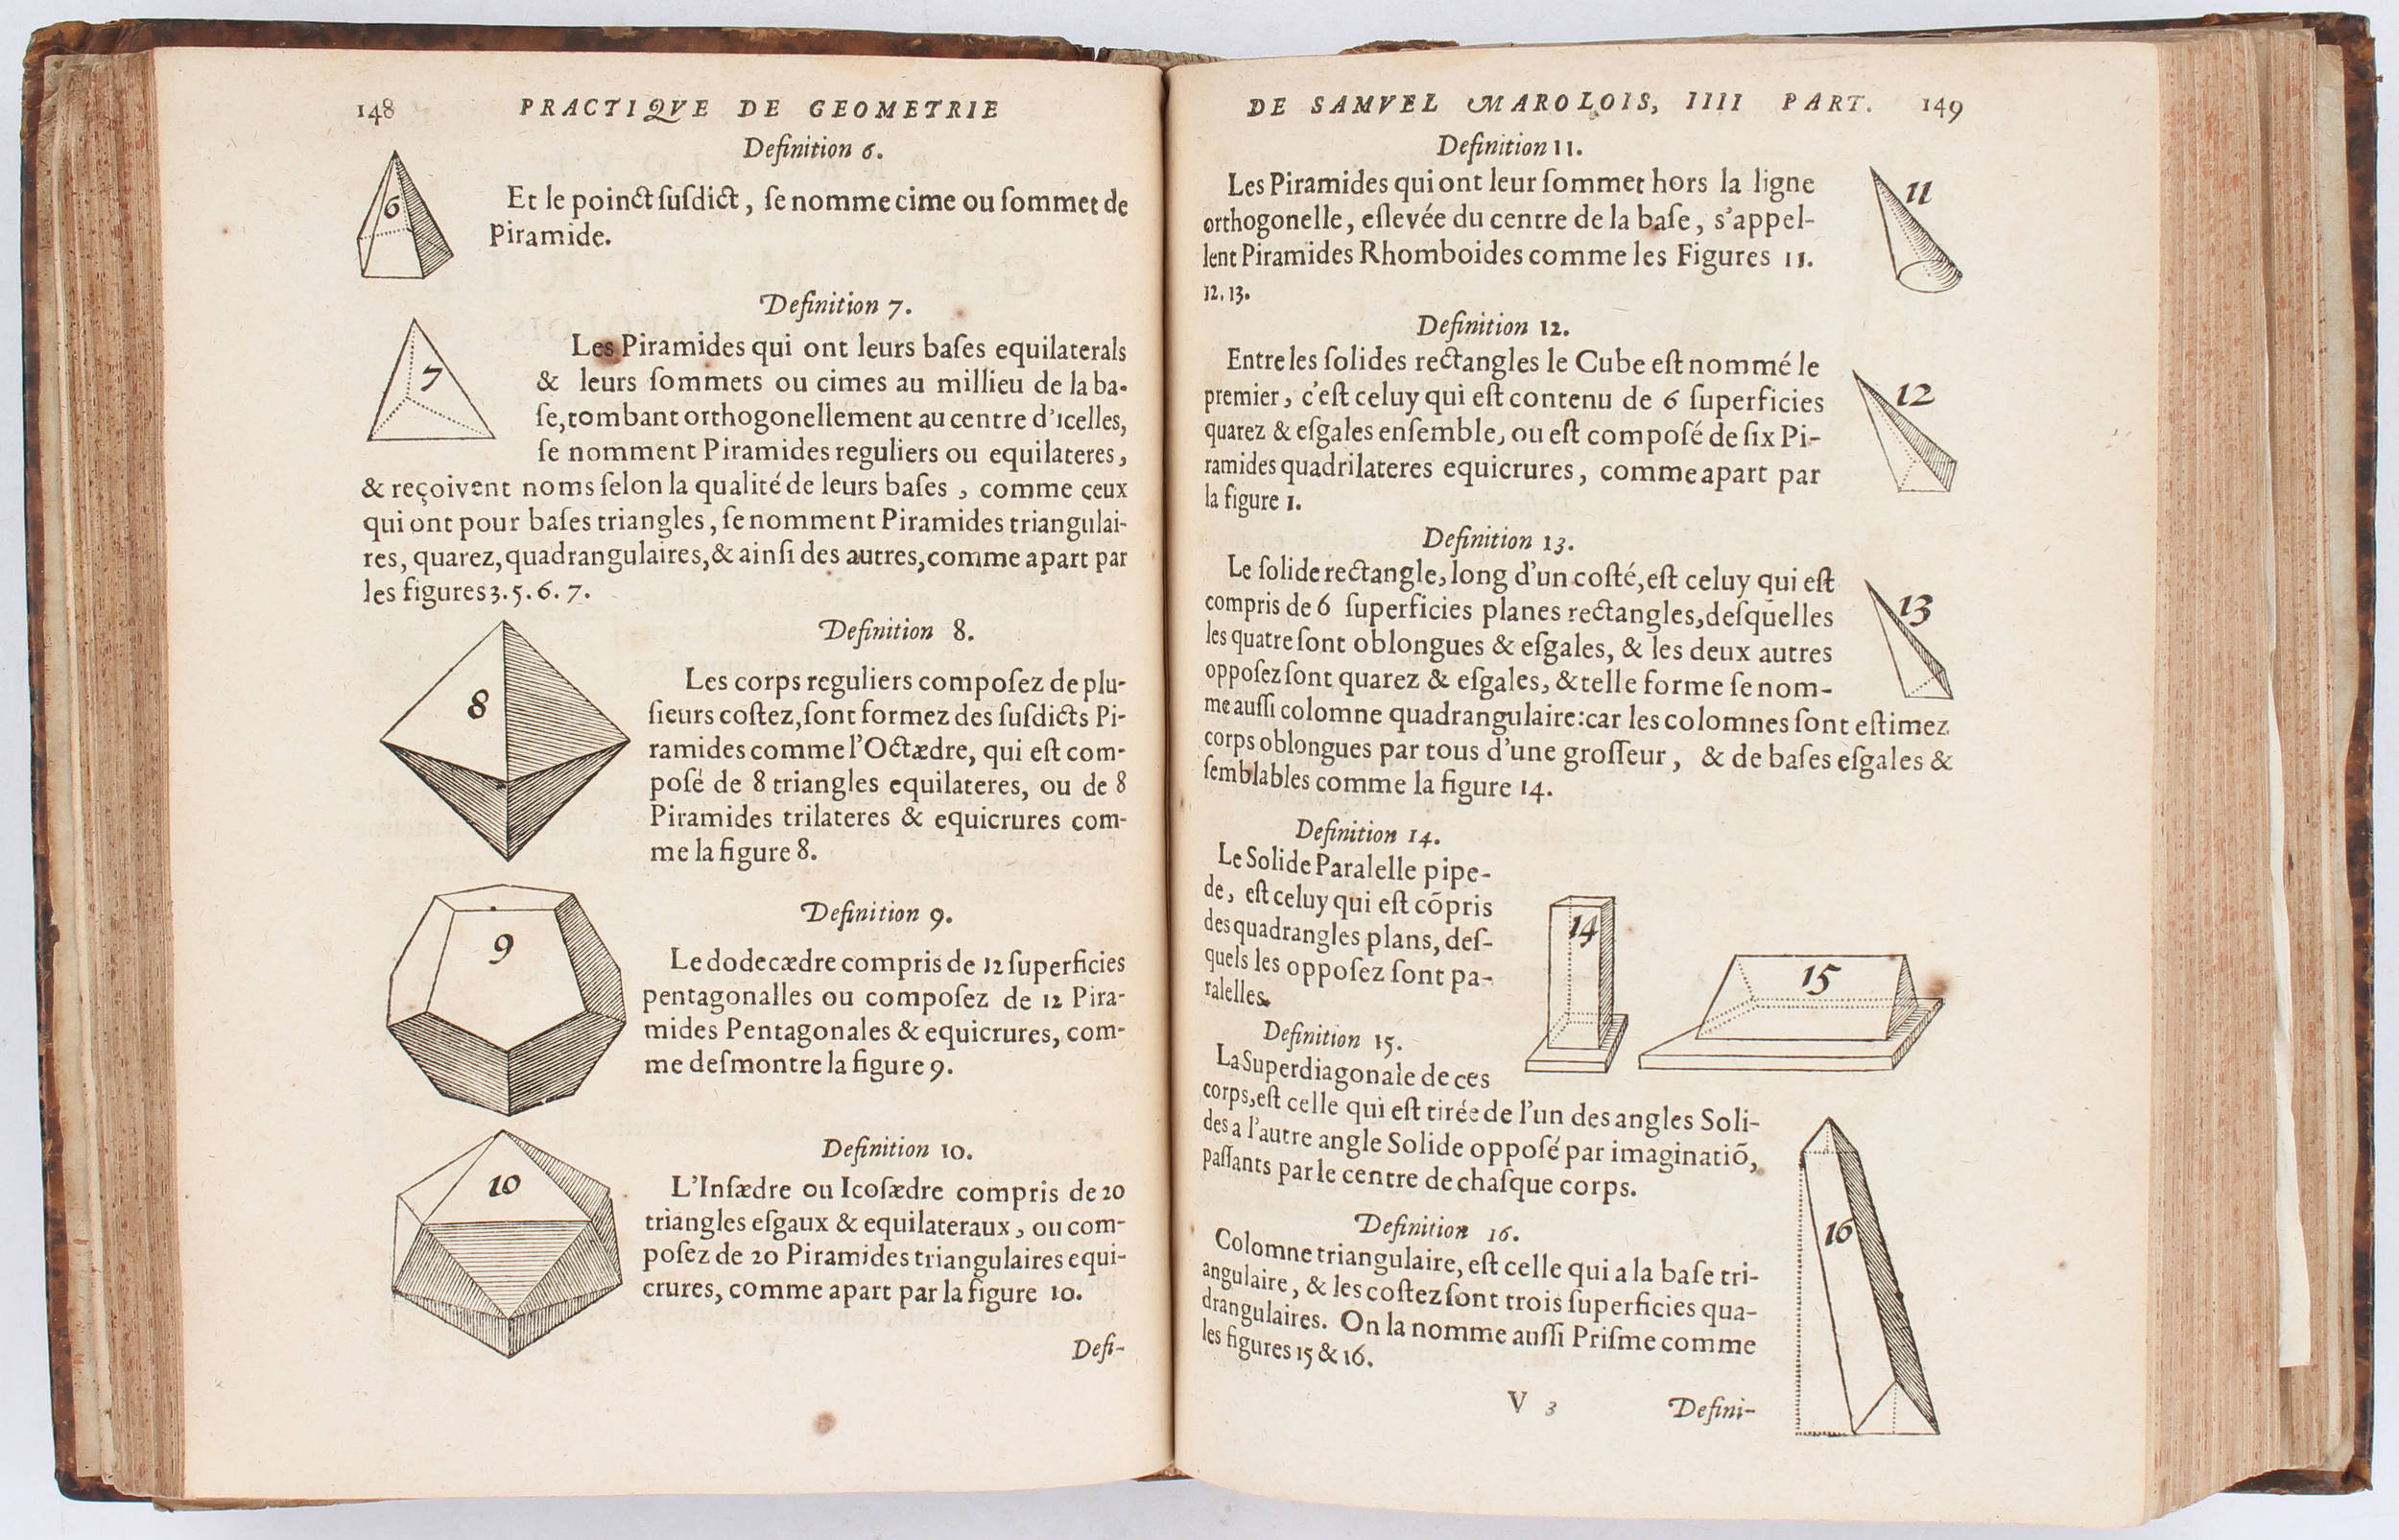 148 PRACTIQVE DE GEOMETRIE
Definition 6.
6
Et le poinct ſuſdict, ſe nomme cime ou ſommet de
Piramide.
Definition 7.
7
Les Piramides qui ont leurs baſes equilaterals
& leurs ſommets ou cimes au millieu de la ba-
ſe, tombant orthogonellement au centre d'icelles,
ſe nomment Piramides reguliers ou equilateres,
& reçoivent noms ſelon la qualité de leurs baſes, comme ceux
qui ont pour baſes triangles, ſe nomment Piramides triangulai-
res, quarez, quadrangulaires, & ainſi des autres, comme apart par
les figures 3. 5. 6. 7.
Definition 8.
8
Les corps reguliers compoſez de plu-
ſieurs coſtez, ſont formez des ſuſdicts Pi-
ramides comme l'Octædre, qui eſt com-
poſé de 8 triangles equilateres, ou de 8
Piramides trilateres & equicrures com-
me la figure 8.
Definition 9.
9
Le dodecædre compris de 12 ſuperficies
pentagonalles ou compoſez de 12 Pira-
mides Pentagonales & equicrures, com-
me deſmontre la figure 9.
Definition 10.
10
L'Inſædre ou Icoſædre compris de 20
triangles eſgaux & equilateraux, ou com-
poſez de 20 Piramides triangulaires equi-
crures, comme apart par la figure 10.
Defi-
DE SAMVEL MAROLOIS, IIII PART. 149
Definition 11.
Les Piramides qui ont leur ſommet hors la ligne
orthogonelle, eſlevée du centre de la baſe, s'appel-
lent Piramides Rhomboides comme les Figures 11.
12. 13.
11
Definition 12.
Entre les ſolides rectangles le Cube eſt nommé le
premier, c'eſt celuy qui eſt contenu de 6 ſuperficies
quarez & eſgales enſemble, ou eſt compoſé de ſix Pi-
ramides quadrilateres equicrures, comme apart par
la figure 1.
12
Definition 13.
Le ſolide rectangle, long d'un coſté, eſt celuy qui eſt
compris de 6 ſuperficies planes rectangles, deſquelles
les quatre ſont oblongues & eſgales, & les deux autres
oppoſez ſont quarez & eſgales, & telle forme ſe nom-
me auſſi colomne quadrangulaire: car les colomnes ſont eſtimez
corps oblongues par tous d'une groſſeur, & de baſes eſgales &
ſemblables comme la figure 14.
13
Definition 14.
Le Solide Paralelle pipe-
de, eſt celuy qui eſt cõpris
des quadrangles plans, deſ-
quels les oppoſez ſont pa-
ralelles.
14
15
Definition 15.
La Superdiagonale de ces
corps, eſt celle qui eſt tirée de l'un des angles Soli-
des a l'autre angle Solide oppoſé par imaginatiõ,
paſſants par le centre de chaſque corps.
Definition 16.
Colomne triangulaire, eſt celle qui a la baſe tri-
angulaire, & les coſtez ſont trois ſuperficies qua-
drangulaires. On la nomme auſſi Priſme comme
les figures 15 & 16.
16
V 3 Defini-